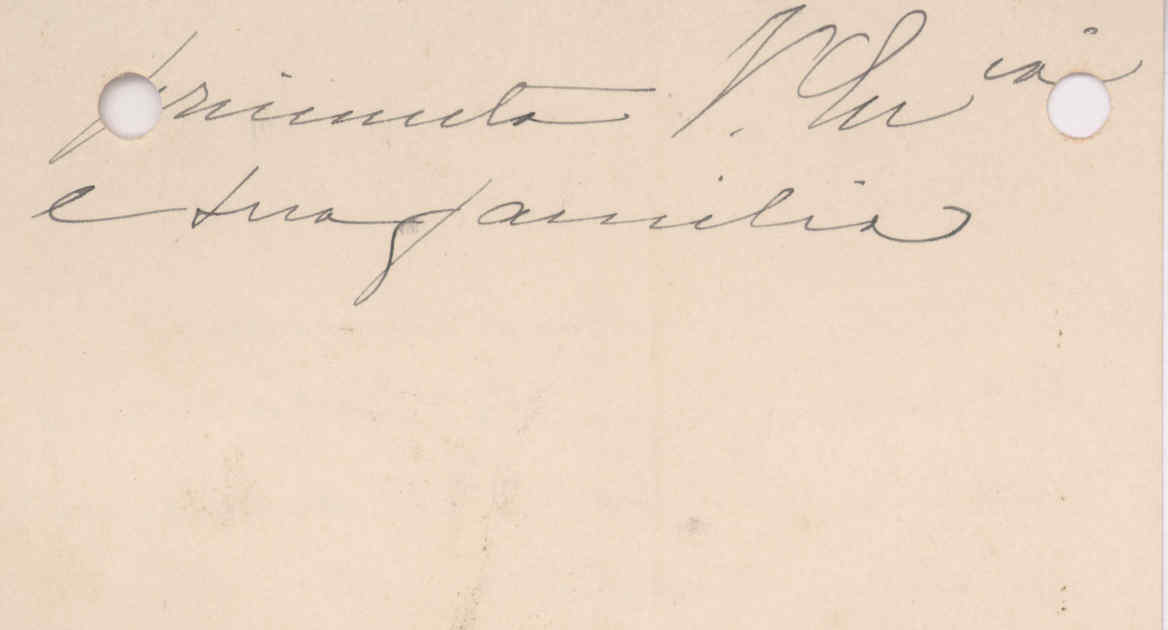 primenta V. Ex cia
e sua familia